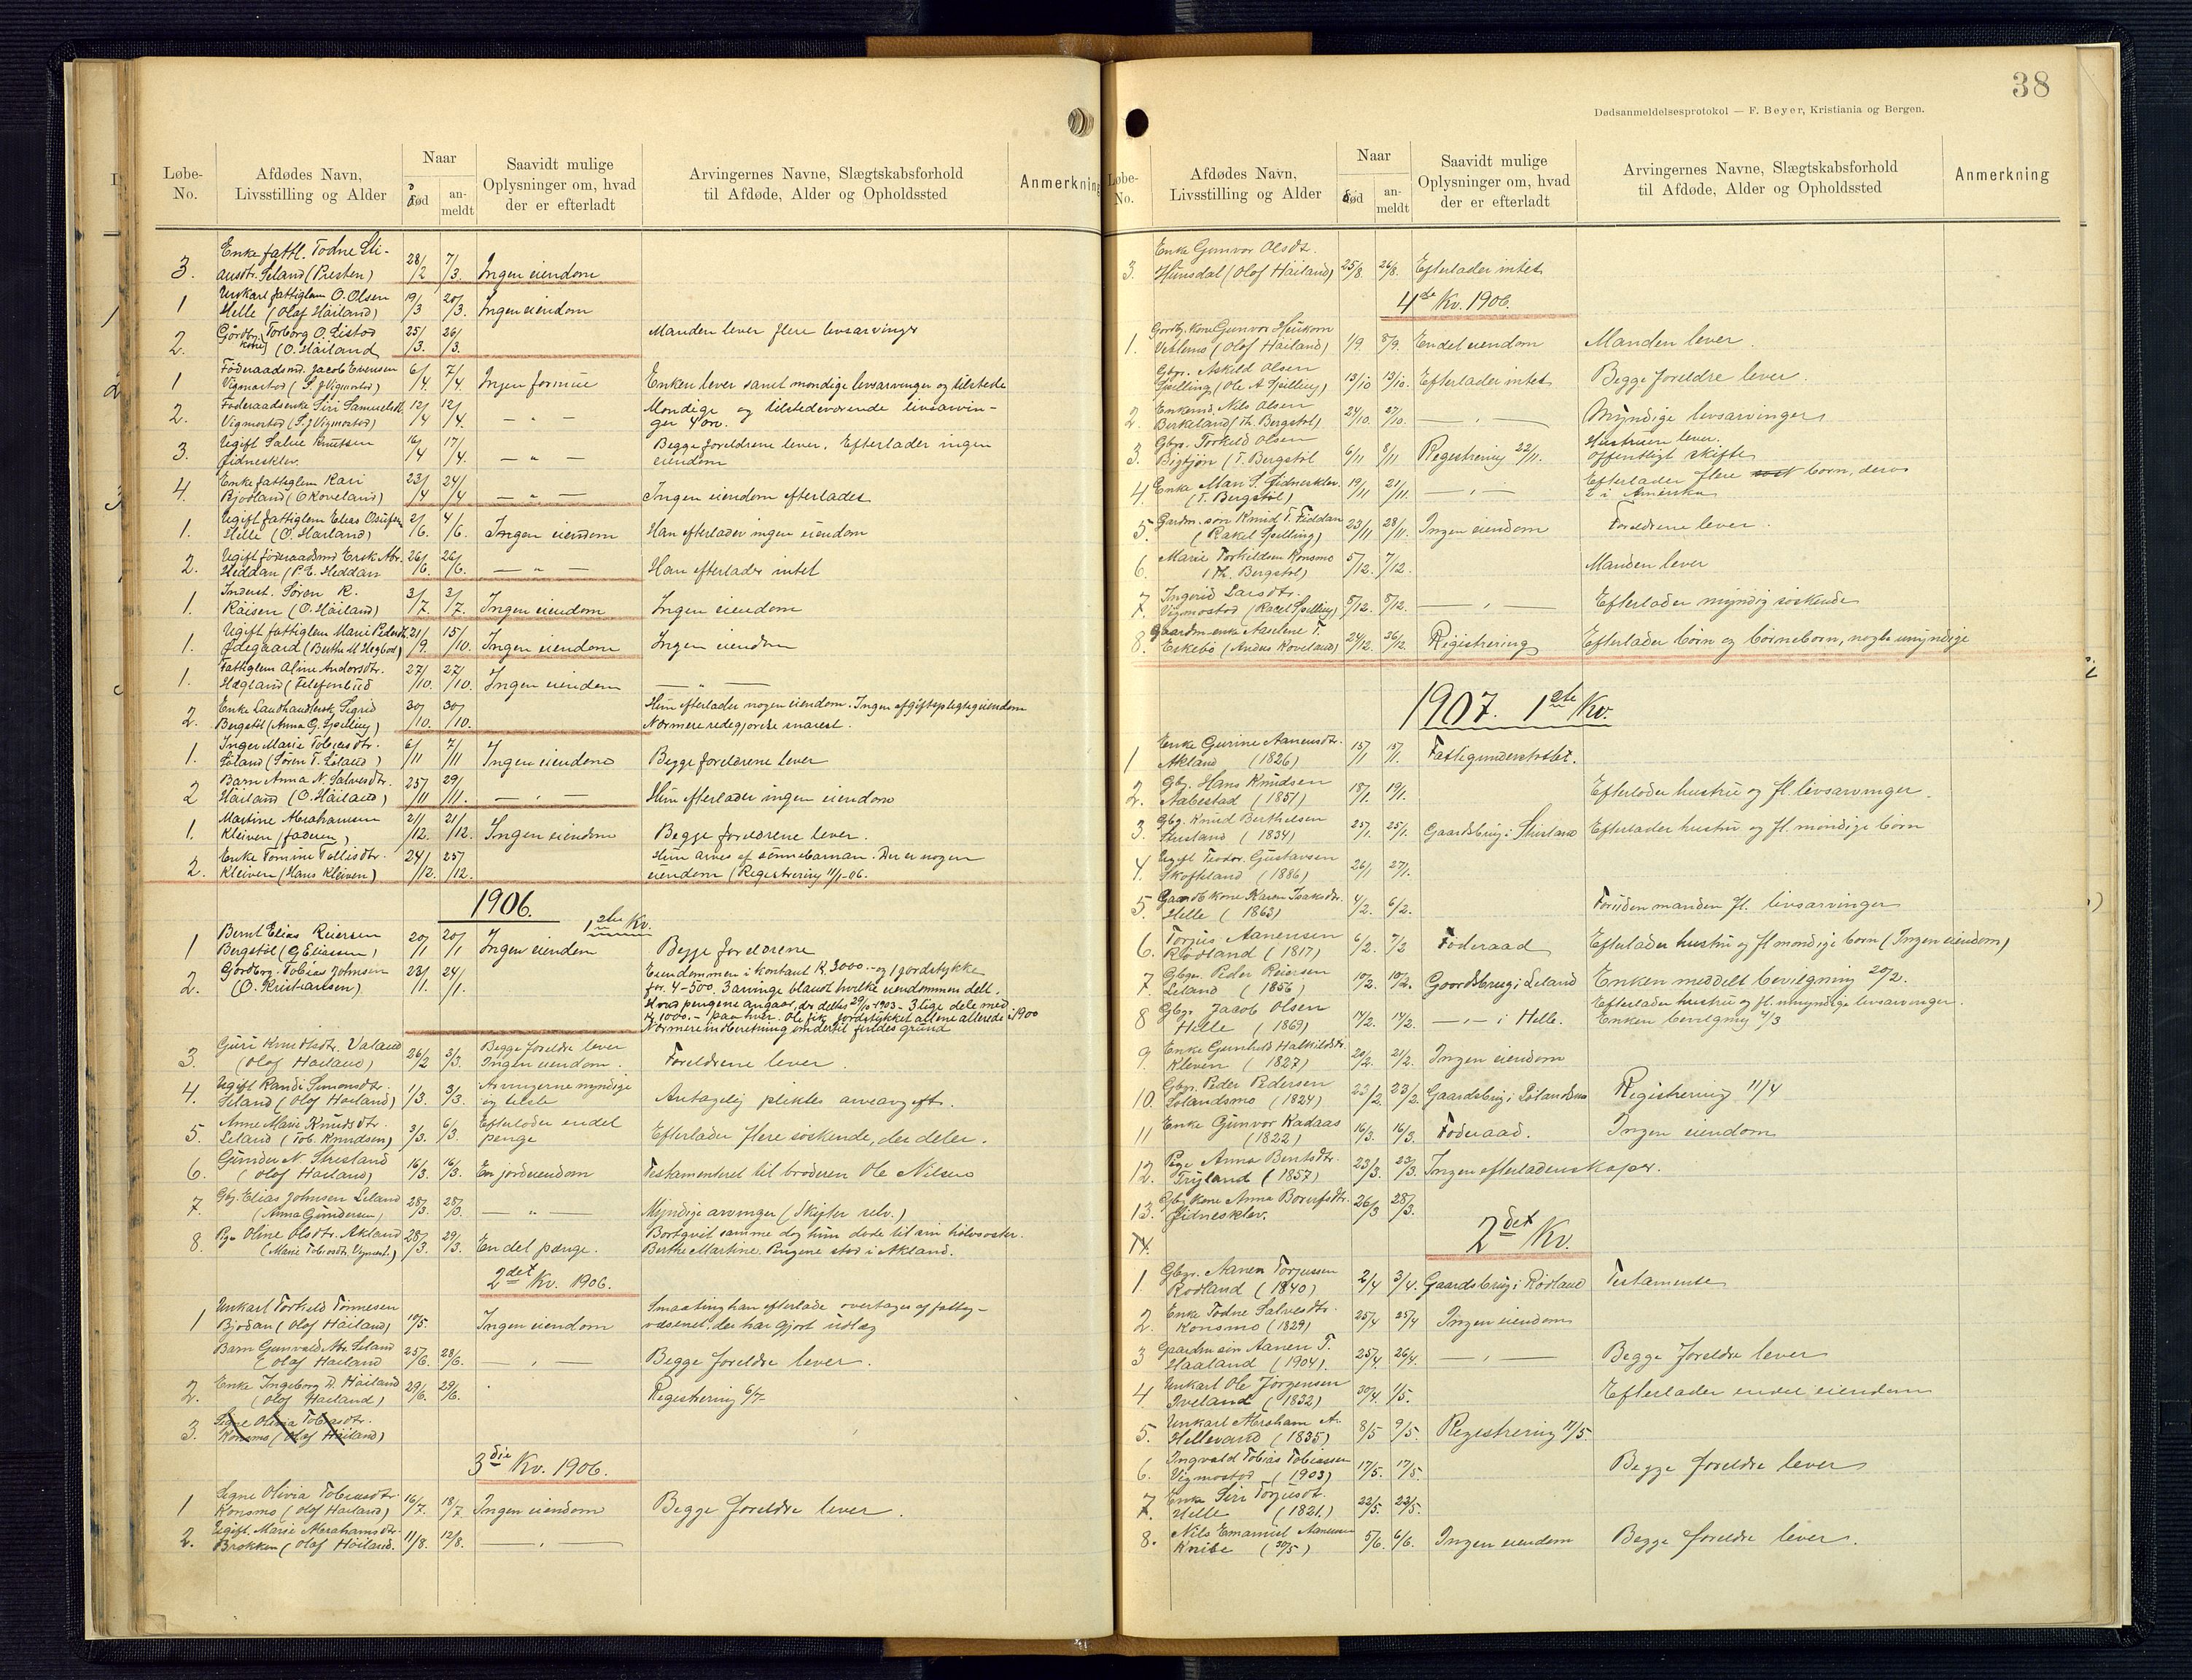 38
Dødsanmeldelsesprotokol — F. Beyer, Kristiania og Bergen.
Løbe-No.
Afdødes Navn, Livsstilling og Alder
Naar
død
an-meldt
Saavidt mulige Oplysninger om, hvad der er efterladt
Arvingernes Navne, Slægtskabsforhold til Afdøde, Alder og Opholdssted
Anmerkning
3. Enke fattl. Todne Sti-
ansdtr. Seland (Presten) 28/2 7/3. Ingen eiendom
1 Unkarl fattiglem O. Olsen
Helle (Olaf Håiland) 19/3 20/3. Ingen eiendom
2. Gårdbr. kone Torborg O. Listad
(O. Håiland 25/3. 26/3. Manden lever flere livsarvinger
1 Föderaadsmd. Jacob Evensen
Vigmostad (S. J Vigmostad) 6/4. 7/4. Ingen formue Enken lever samt mondige livsarvinger og tilstede
2. Föderaadsenke Siri Samuelsdt.
Vigmostad (S. J Vigmostad) 12/4 12/4. — " — Mondige og tilstedeværende livsarvin-
ger 4 an.
3. Ugift Salve Knutsen
Fidneskley. 16/4 17/4. — " — Begge foreldrene lever. Efterlader ingen
eiendom
4. Enke fattiglem Kari
Bjodland (C Koveland) 23/4 24/4 — " — Ingen eiendom efterlades
1. Ugift fattiglem Elias Osufsen
Helle (O. Harland) 2/6. 4/6. Ingen eiendom Han efterlader ingen eiendom
2. Ugift föderaadsmd Erik Abr.
Heddan (P. E. Heddan 26/6. 26/6. — " — Han efterlader intet
1. Inderst. Søren R.
Råisen (O. Håiland) 3/7. 3/7. Ingen eiendom Ingen eiendom
1. Ugift fattiglem Marie Pedersdt.
Ødegaard (Berthe M Hegbod) 21/9. 15/10. Ingen eiendom Ingen eiendom
1. Fattiglem Aline Andersdtr.
Hægland (Telefonbud 27/10. 27/10. Ingen eiendom — " —
2. Enke Landhandlersk Sigrid
Bergstöl (Anna G. Spilling) 30/10. 30/10. Hun efterlader nogen eiendom. Ingen afgiftspligtig eiendom
Nærmere redegjørelse snarest.
1. Inger Marie Tobiasdtr.
Löland (Søren T. Löland) 6/11 7/11 Ingen eiendom Begge foreldrene lever
2 Barn Anna N. Salvesdtr.
Håiland (O. Håiland) 25/11 29/11. — " — Hun efterlader ingen eiendom
1. Martine Abrahamsen
Kleiven (faderen) 21/12. 21/12. Ingen eiendom Begge foreldrene lever.
2. Enke Tomine Tellisdtr.
Kleiven (Hans Kleiven) 24/12. 25/12. Hun arves af sønnebarnan. Der er nogen
eiendom (Registrering 11/1-06.
1906.
1ste Kv.
1 Bernt Elias Reiersen
Bergstöl (G Eliassen) 20/1 20/1 Ingen eiendom Begge foreldrene
2. Gårdbrg. Tobias Johnsen
(O. Kristiansen) 23/1. 24/1. Eiendommen i kontant K. 3000.- og 1 jordstykke
for 4-500. 3 arvinge blandt hvilke eiendommen delt.
Hvad pengene angaar, der deltes 29/10-1903 - 3 lige dele med
K 1000.- paa hver. Ole fik jordstykket allene allerede i 1900
Nærmere indberetning undertil fuldes grund
3. Guri Knudsdtr. Valand
(Olaf Hailand) 26/2 3/3. Begge foreldre lever
Ingen eiendom. Foreldrene lever.
4. Ugift Randi Simonsdtr.
Seland (Olaf Hailand) 1/3. 3/3. Arvingerne myndige
Antagelig pliktes arveavgift.
5. Anne Marie Knudsdtr.
Leland (Tob. Knudsen) 3/3. 6/3. Efterlader endel
penge Efterlader flere søskende, der deler.
6. Gunder N. Strisland
(Olaf Hailand) 16/3. 16/3. En jordeiendom Testamenteret til broderen Ole Nilsen
7 Gbg. Elias Johnsen Leland
(Anna Gundersen) 28/3. 28/3. — " — Myndige arvinger (Skifter selv.)
8. Pge Oline Olsdtr. Akland
(Marie Tobiasdtr. Vigmost.) 28/3. 29/3. En del penge. Bortgivet samme dag hun døde til sin halvsøster
Berthe Martine. Pengene stod i Akland.
2det Kv. 1906.
1 Unkarl Torkeld Tönnesen
Bjodan (Olaf Håiland) 10/5. Ingen eiendom Smaating han efterlade overtages af fattig-
væsenet, der har gjort udlæg
Barn Gunvald Abr. Seland
(Olaf Hailand 25/6. 28/6. — " — Begge foreldre lever.
2. Enke Ingeborg D. Håiland
(Olaf Hailand) 29/6. 29/6. Registrering 6/7-
3. Signe Olivia Tobiasdtr.
Konsmo (Olaf Håiland)
3die Kv. 1906.
1 Signe Olivia Tobiasdtr.
Konsmo (Olaf Hailand) 16/7. 18/7. Ingen eiendom Begge foreldre lever.
2. Ugift. Marie Abrahamsdtr.
Brokken (Olaf Håiland. 11/8. 12/8. — " —
Løbe-No.
Afdødes Navn, Livsstilling og Alder
Naar
død
an-meldt
Saavidt mulige Oplysninger om, hvad der er efterladt
Arvingernes Navne, Slægtskabsforhold til Afdøde, Alder og Opholdssted
Anmerkning
3. Enke Gunvor Olsdt.
Hunsdal (Olaf Håiland) 25/8. 26/8. Efterlader intet
4de Kv. 1906.
1. Gaardbg. Kone Gunvor Heikom
Veblems (Olaf Håiland) 1/9. 8/9. Endel eiendom Manden lever.
Gbgr. Askild Olsen
Spilling (Ole A Spilling) 13/10 13/10. Efterlader intet Begge foreldre lever.
2 Enkemd. Nils Olsen
Birkeland (Th. Bergstøl) 24/10. 27/10. — " — Myndige livsarvinger
3. Gbgr. Torkeld Olsen
Bigtjøn (T. Bergstøl 6/11 8/11 Registrering 22/11. Hustruen lever.
Offentligt skifte
4 Enke Mari S. Fidneskley.
(T. Bergstøl) 19/11 21/11. — " — Efterlader flere børn, derav
2 i Amerika
5. Gaardm. søn Knud T. Fiddan
(Rakel Spilling) 23/11 28/11. Ingen eiendom Foreldrene lever.
6. Marie Torkildsen Konsmo
(Th. Bergstøl) 5/12. 7/12. Manden lever
7. Ingerid Larsdtr.
Vigmostad (Racel Spilling) 8/12. 8/12. — " — Efterlader myndig søskende
8. Gaardm-enke Aaselene T.
Eskebø (Anders Koveland) 24/12. 26/12. Registrering Efterlader børn og børnebørn, nogle umyndige
1907. 1ste Kv.
1 Enke Gurine Aanensdtr.
Akland (1826) 15/1 15/1. Fattigunderstøttet.
2. Gbg. Hans Knudsen
Aabestad (1851) 18/1. 19/1. Efterlader hustru og fl. livsarvinger.
3. Gbg. Knud Berthelsen
Stusland (1834) 25/1. 25/1. Gaardsbrug i Stusland Efterlader hustru og fl. møndige børn
4. Ugift Teodor Gustavsen
Skofteland (1886) 26/1 27/1.
5. Gaardb kone Karen Isaksdtr.
Helle (1863) 4/2. 6/2. Foruden manden fl. livsarvinger
6. Torjus Aanensen
Rødland (1817) 6/2. 7/2 Föderaad Efterlader hustru og fl mondige børn (Ingen eiendom)
7 Gbgr. Peder Reiersen
Leland (1856) 10/2. 10/2. Gaardsbrug i Leland Enken meddelt bevilgning 20/2.
8 Gbgr Jacob Olsen
Helle (1869) 14/2. 14/2. — " — i Helle. Efterlader hustru og fl. umyndige livsarvinger.
Enken bevilgning 4/3
9. Enke Gunhild Halkildsdtr.
Kleven (1827) 20/2. 21/2. Ingen eiendom
10. Gbgr. Peder Pedersen
Lølandsmo (1824) 23/2. 23/2. Gaardsbrug i Lølandsmo Registrering 11/4
11 Enke Gunvor Kadaas
(1822) 16/3. 16/3. Föderaad. Ingen eiendom
12. Pige Anna Berntsdtr.
Tryland (1857) 23/3. 23/3. Ingen efterladenskaper.
13. Gbg kone Anna
Fidneskley. 26/3 28/3.
14.
2det Kv.
1. Gbgr. Aanen Torjussen
Rødland (1840) 2/4 3/4. Gaardsbrug i Rødland Testamente
2. Enke Todne Salvesdtr.
Konsmo (1829) 25/4 25/4 Ingen eiendom
3 Gaardm søn Aanen T.
Haaland (1904). 25/4. 26/4. — " — Begge foreldre lever
4 Unkarl Ole Jørgensen
Iveland (1832) 30/4. 1/5. Efterlader endel eiendom
5. Unkarl Abraham A.
Hellevand (1835) 8/5 9/5. Registrering 11/5
6. Ingvald Tobias Tobiassen
Vigmostad (1903) 17/5. 17/5. Begge foreldre lever
7. Enke Siri Torjusdt.
Helle (1821) 22/5. 23/5.
8. Nils Emanuel Aanensen
Knibe (30/5) 5/6. 6/6. Ingen eiendom Begge foreldre lever.